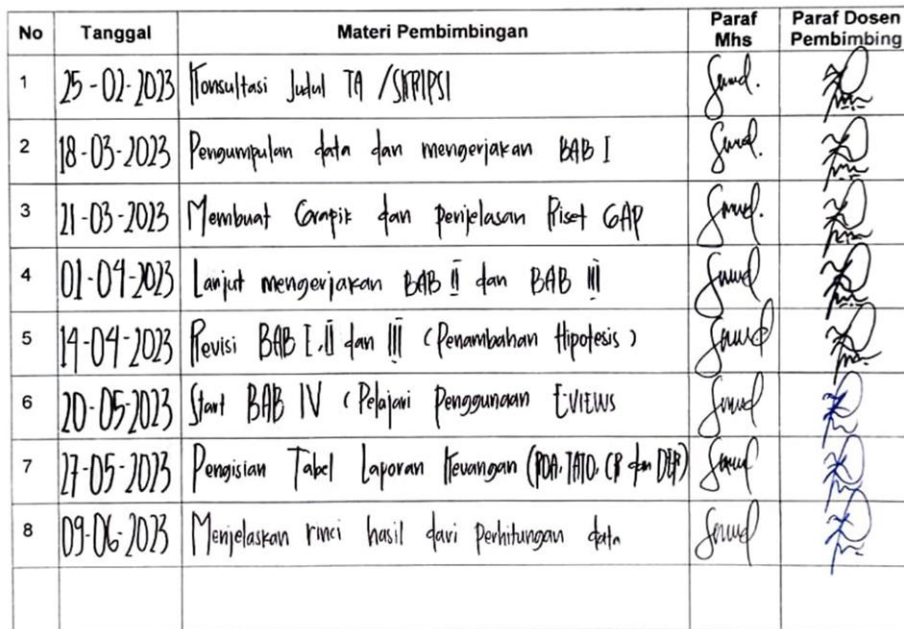 No Tanggal Materi Pembimbingan Paraf Mhs Paraf Dosen Pembimbing
1 25-02-2023 Konsultasi Judul TA /SKRIPSI
2 18-03-2023 Pengumpulan data dan mengerjakan BAB I
3 21-03-2023 Membuat Grapik dan penjelasan Riset GAP
4 01-04-2023 Lanjut mengerjakan BAB II dan BAB III
5 14-04-2023 Revisi BAB I,II dan III (Penambahan Hipotesis)
6 20-05-2023 Start BAB IV (Pelajari Penggunaan EVIEWS
7 27-05-2023 Pengisian Tabel Laporan Keuangan (ROA, TATO, CR dan DER)
8 09-06-2023 Menjelaskan rinci hasil dari Perhitungan data